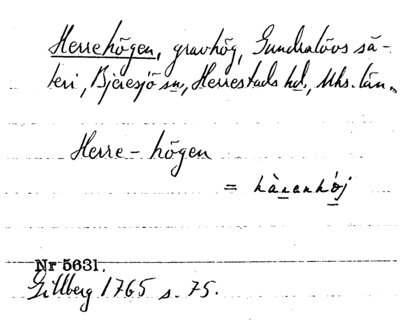 Herrehögen, gravhög, Gundralövs sä-
teri, Bjeresjö sn, Herrestads hd, Mhs. län.
Herre-högen
= hàrenhój
Nr 5631.
Gillberg 1765 s. 75.